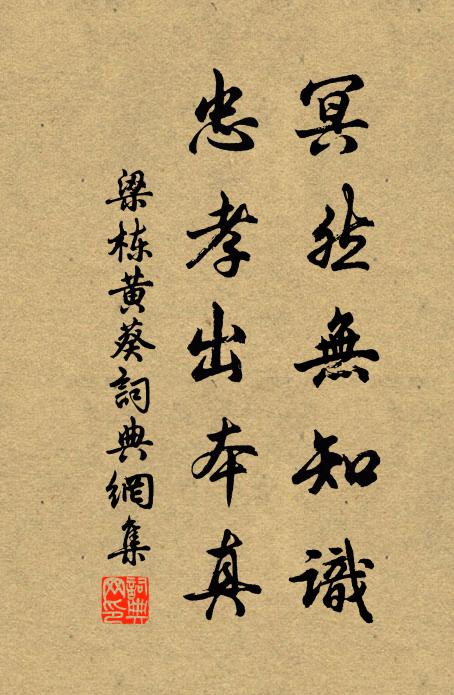 冥然無知識
忠孝出本真
梁栋黄葵詞典網集
詞典網印